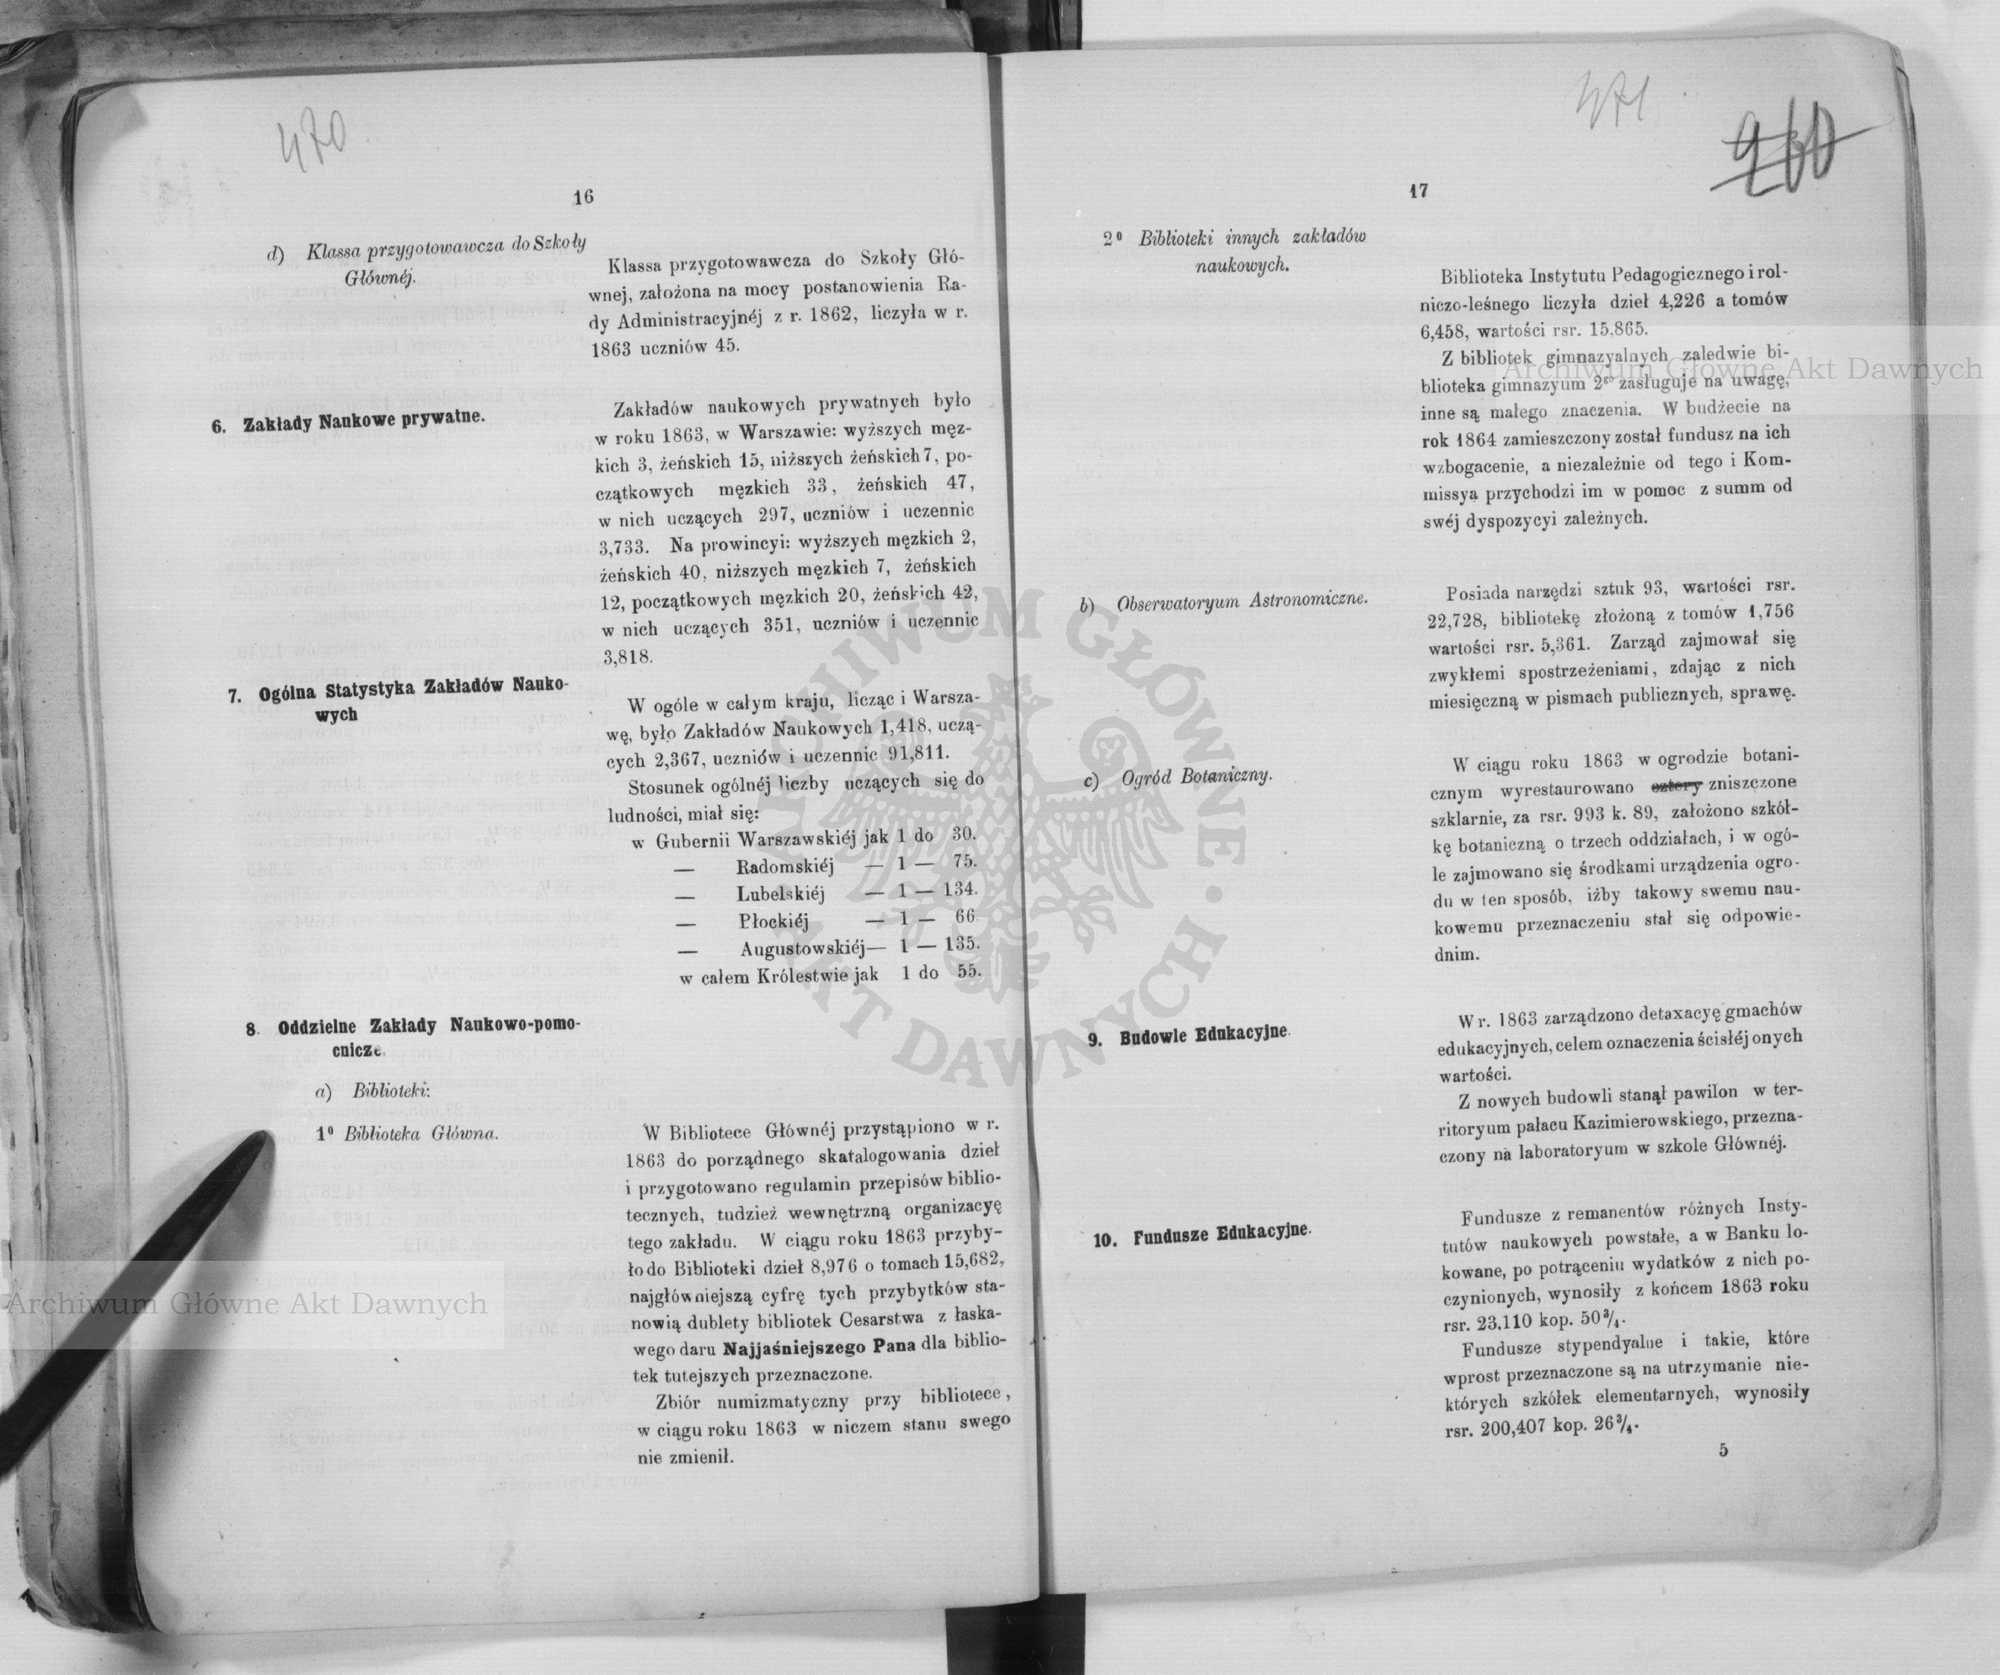 470
16
d) Klassa przygotowawcza do Szkoły
Głównéj.
Klassa przygotowawcza do Szkoły Głó-
wnej, założona na mocy postanowienia Ra-
dy Administracyjnéj z r. 1862, liczyła w r.
1863 uczniów 45.
6. Zakłady Naukowe prywatne.
Zakładów naukowych prywatnych było
w roku 1863, w Warszawie: wyższych męz-
kich 3, żeńskich 15, niższych żeńskich 7, po-
czątkowych męzkich 33, żeńskich 47,
w nich uczących 297, uczniów i uczennic
3,733. Na prowincyi: wyższych męzkich 2,
żeńskich 40, niższych męzkich 7, żeńskich
12, początkowych męzkich 20, żeńskich 42,
w nich uczących 351, uczniów i uczennic
3,818.
7. Ogólna Statystyka Zakładów Nauko-
wych
W ogóle w całym kraju, licząc i Warsza-
wę, było Zakładów Naukowych 1,418, uczą-
cych 2,367, uczniów i uczennic 91,811.
Stosunek ogólnéj liczby uczących się do
ludności, miał się:
w Gubernii Warszawskiéj jak 1 do 30.
— Radomskiéj — 1 — 75.
— Lubelskiéj — 1 — 134.
— Płockiéj — 1 — 66
— Augustowskiéj — 1 — 135.
w całem Królestwie jak 1 do 55.
8. Oddzielne Zakłady Naukowo-pomo-
cnicze.
a) Biblioteki:
1⁰ Biblioteka Główna.
W Bibliotece Głównéj przystąpiono w r.
1863 do porządnego skatalogowania dzieł
i przygotowano regulamin przepisów biblio-
tecznych, tudzież wewnętrzną organizacyę
tego zakładu. W ciągu roku 1863 przyby-
ło do Biblioteki dzieł 8,976 o tomach 15,682,
najgłówniejszą cyfrę tych przybytków sta-
nowią dublety bibliotek Cesarstwa z łaska-
wego daru Najjaśniejszego Pana dla biblio-
tek tutejszych przeznaczone.
Zbiór numizmatyczny przy bibliotece,
w ciągu roku 1863 w niczem stanu swego
nie zmienił.
Archiwum Główne Akt Dawnych
471
260
17
2⁰ Biblioteki innych zakładów
naukowych.
Biblioteka Instytutu Pedagogicznego i rol-
niczo-leśnego liczyła dzieł 4,226 a tomów
6,458, wartości rsr. 15,865.
Z bibliotek gimnazyalnych zaledwie bi-
blioteka gimnazyum 2go zasługuje na uwagę,
inne są małego znaczenia. W budżecie na
rok 1864 zamieszczony został fundusz na ich
wzbogacenie, a niezależnie od tego i Kom-
missya przychodzi im w pomoc z summ od
swéj dyspozycyi zależnych.
Archiwum Główne Akt Dawnych
b) Obserwatoryum Astronomiczne.
Posiada narzędzi sztuk 93, wartości rsr.
22,728, bibliotekę złożoną z tomów 1,756
wartości rsr. 5,361. Zarząd zajmował się
zwykłemi spostrzeżeniami, zdając z nich
miesięczną w pismach publicznych, sprawę.
c) Ogród Botaniczny.
W ciągu roku 1863 w ogrodzie botani-
cznym wyrestaurowano cztery zniszczone
szklarnie, za rsr. 993 k. 89, założono szkół-
kę botaniczną o trzech oddziałach, i w ogó-
le zajmowano się środkami urządzenia ogro-
du w ten sposób, iżby takowy swemu nau-
kowemu przeznaczeniu stał się odpowie-
dnim.
9. Budowle Edukacyjne.
W r. 1863 zarządzono detaxacyę gmachów
edukacyjnych, celem oznaczenia ścisłéj onych
wartości.
Z nowych budowli stanął pawilon w ter-
ritoryum pałacu Kazimierowskiego, przezna-
czony na laboratoryum w szkole Głównéj.
10. Fundusze Edukacyjne.
Fundusze z remanentów różnych Insty-
tutów naukowych powstałe, a w Banku lo-
kowane, po potrąceniu wydatków z nich po-
czynionych, wynosiły z końcem 1863 roku
rsr. 23,110 kop. 50¾.
Fundusze stypendyalne i takie, które
wprost przeznaczone są na utrzymanie nie-
których szkółek elementarnych, wynosiły
rsr. 200,407 kop. 26¾.
5
ARCHIWUM GŁÓWNE • AKT DAWNYCH •